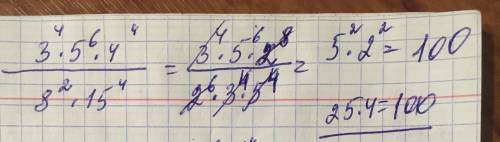 3⁴·5⁶·4⁴ / 8²·15⁴ = 3⁴·5⁶·2⁸ / 2⁶·3⁴·5⁴ = 5²·2² = 100
25·4=100